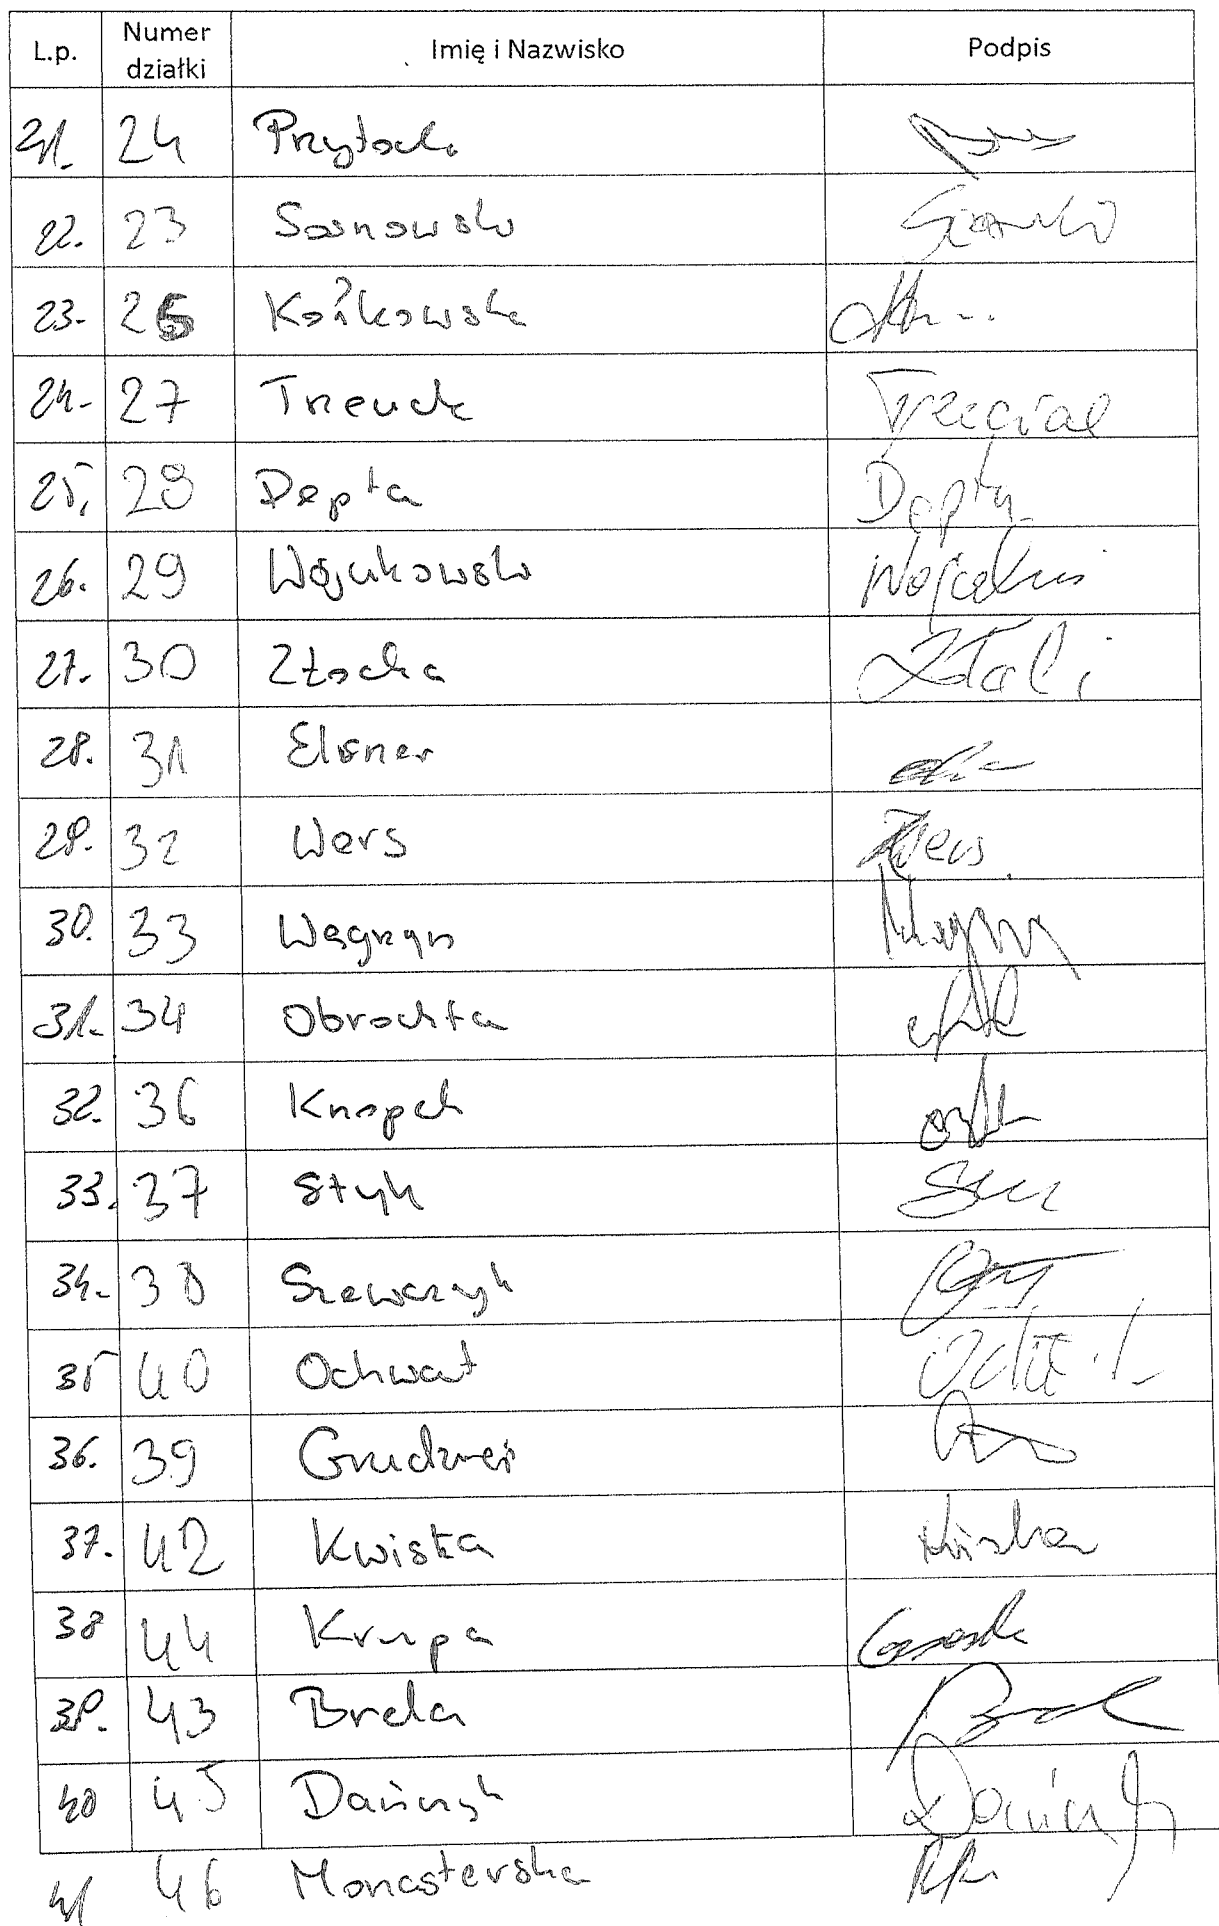 L.p. Numer działki Imię i Nazwisko Podpis
21. 24 Przytocki
22. 23 Sosnowski
23. 26 Kośkowska
24. 27 Trzeciak Trzeciak
25. 28 Depta Depta
26. 29 Wójcikowski
27. 30 Złocka
28. 31 Elsner
29. 32 Wers Wers
30. 33 Węgrzyn
31. 34 Obrochta
32. 36 Knopek
33. 37 Styk
34. 38 Szewczyk
35 40 Ochwat
36. 39 Grudzień
37. 42 Kwiska
38 44 Krupa
39. 43 Brela
40 45 Dańczyk
41 46 Monasterska